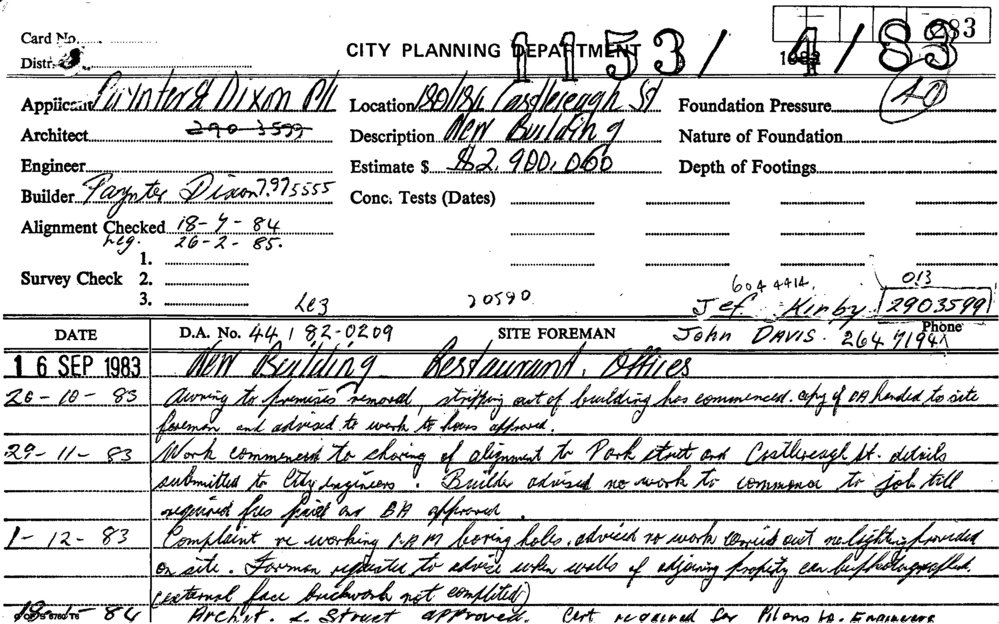 Card No.
CITY PLANNING DEPARTMENT 1153/4/83
Distr.
Applicant Paynter & Dixon P/L Location 180/186 Castlereagh St Foundation Pressure
40
Architect 290 3599 Description New Building Nature of Foundation
Engineer Estimate $ $2,900,000 Depth of Footings
Builder Paynter Dixon 7975555 Conc. Tests (Dates)
Alignment Checked 18-7-84
Leg. 26-2-85.
1.
Survey Check 2.
3.
604 4414. 013
Lez 20590 Jef Kirby 2903599
DATE D.A. No. 44/82-0209 SITE FOREMAN John DAVIS. Phone 264 7194
16 SEP 1983 New Building Restaurant, Offices
20-10-83 Awning to premises removed, stripping out of building has commenced. copy of DA handed to site
foreman and advised to work to hours approved.
29-11-83 Work commenced to shoring of alignment to Park street and Castlereagh St. details
submitted to City engineers. Builder advised no work to commence to job till
required fees paid and BA approved.
1-12-83 Complaint re working 1 AM boring holes. advised no work carried out no lighting provided
on site. Forman requested to advise when walls of adjoining property can be photographed.
(external face brickwork not completed)
84 Archit. & Struct approved. Cert required for Pilons to. Engineers